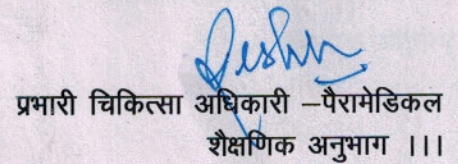 प्रभारी चिकित्सा अधिकारी –पैरामेडिकल
शैक्षणिक अनुभाग ।।।